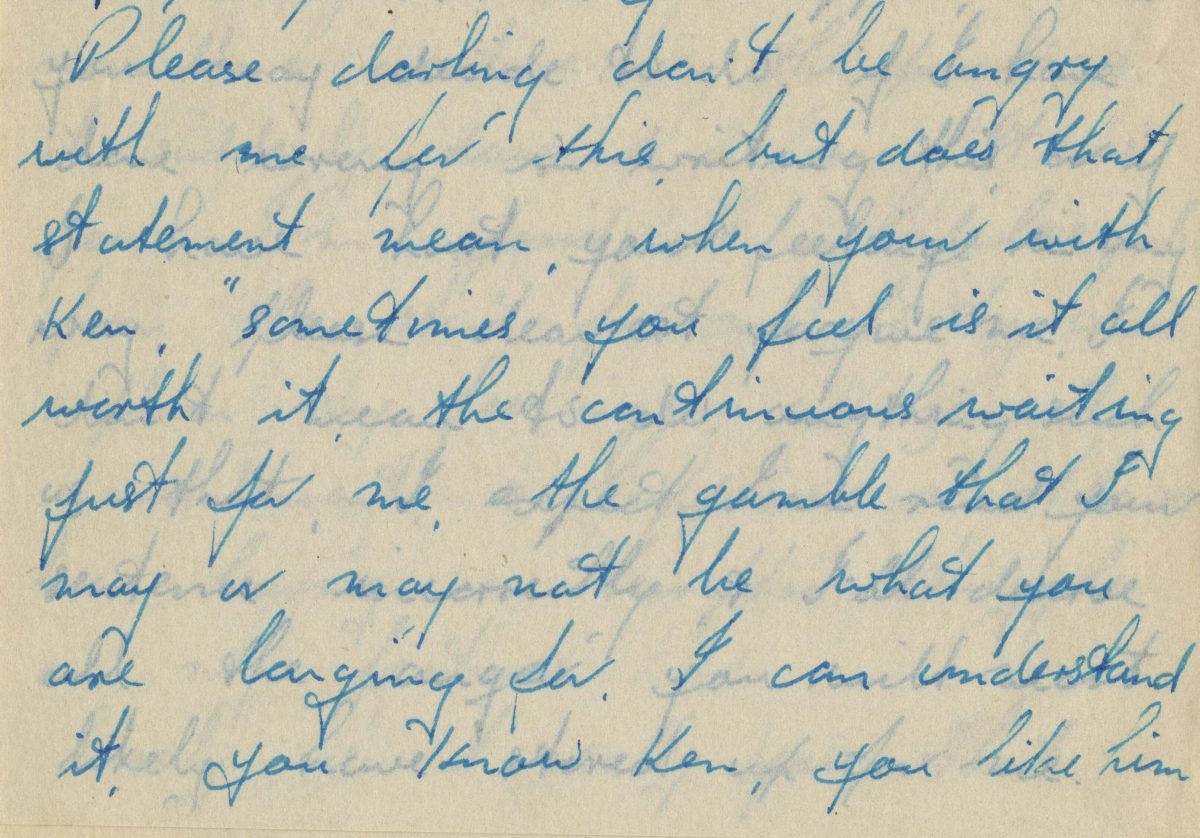 Please darling don't be angry
with me for this, but does that
statement mean, when your with
Ken, "sometimes you feel is it all
worth it, the continuous waiting
just for me, the gamble that I
may or may not be what you
are longing for. I can understand
it, you know Ken, you like him